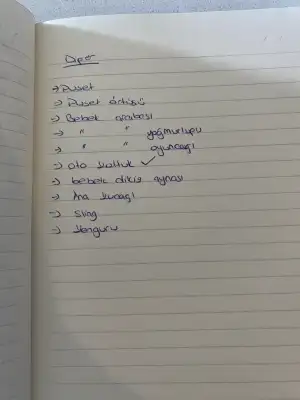 Dış
→ Puset
→ Puset örtüsü
→ Bebek arabası
→ " " yağmurluğu
→ " " oyuncağı
→ oto koltuk ✓
→ bebek dikiz aynası
→ Ana kucağı
→ Sling
→ Kanguru